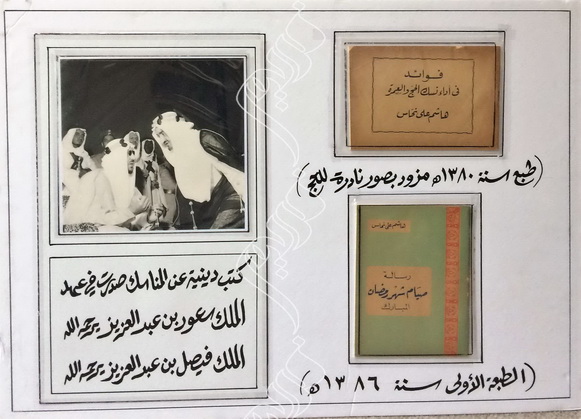 فوائد
في أداء نسك الحج والعمرة
هاشم علي نحاس
(طبع سنة ١٣٨٠ه مزود بصور نادرة للحج)
هاشم علي نحاس
رسالة
صيام شهر رمضان
المبارك
(الطبعة الأولى سنة ١٣٨٦ه)
كتب دينية عن المناسك صدرت في عهد
الملك سعود بن عبد العزيز يرحمه الله
الملك فيصل بن عبد العزيز يرحمه الله